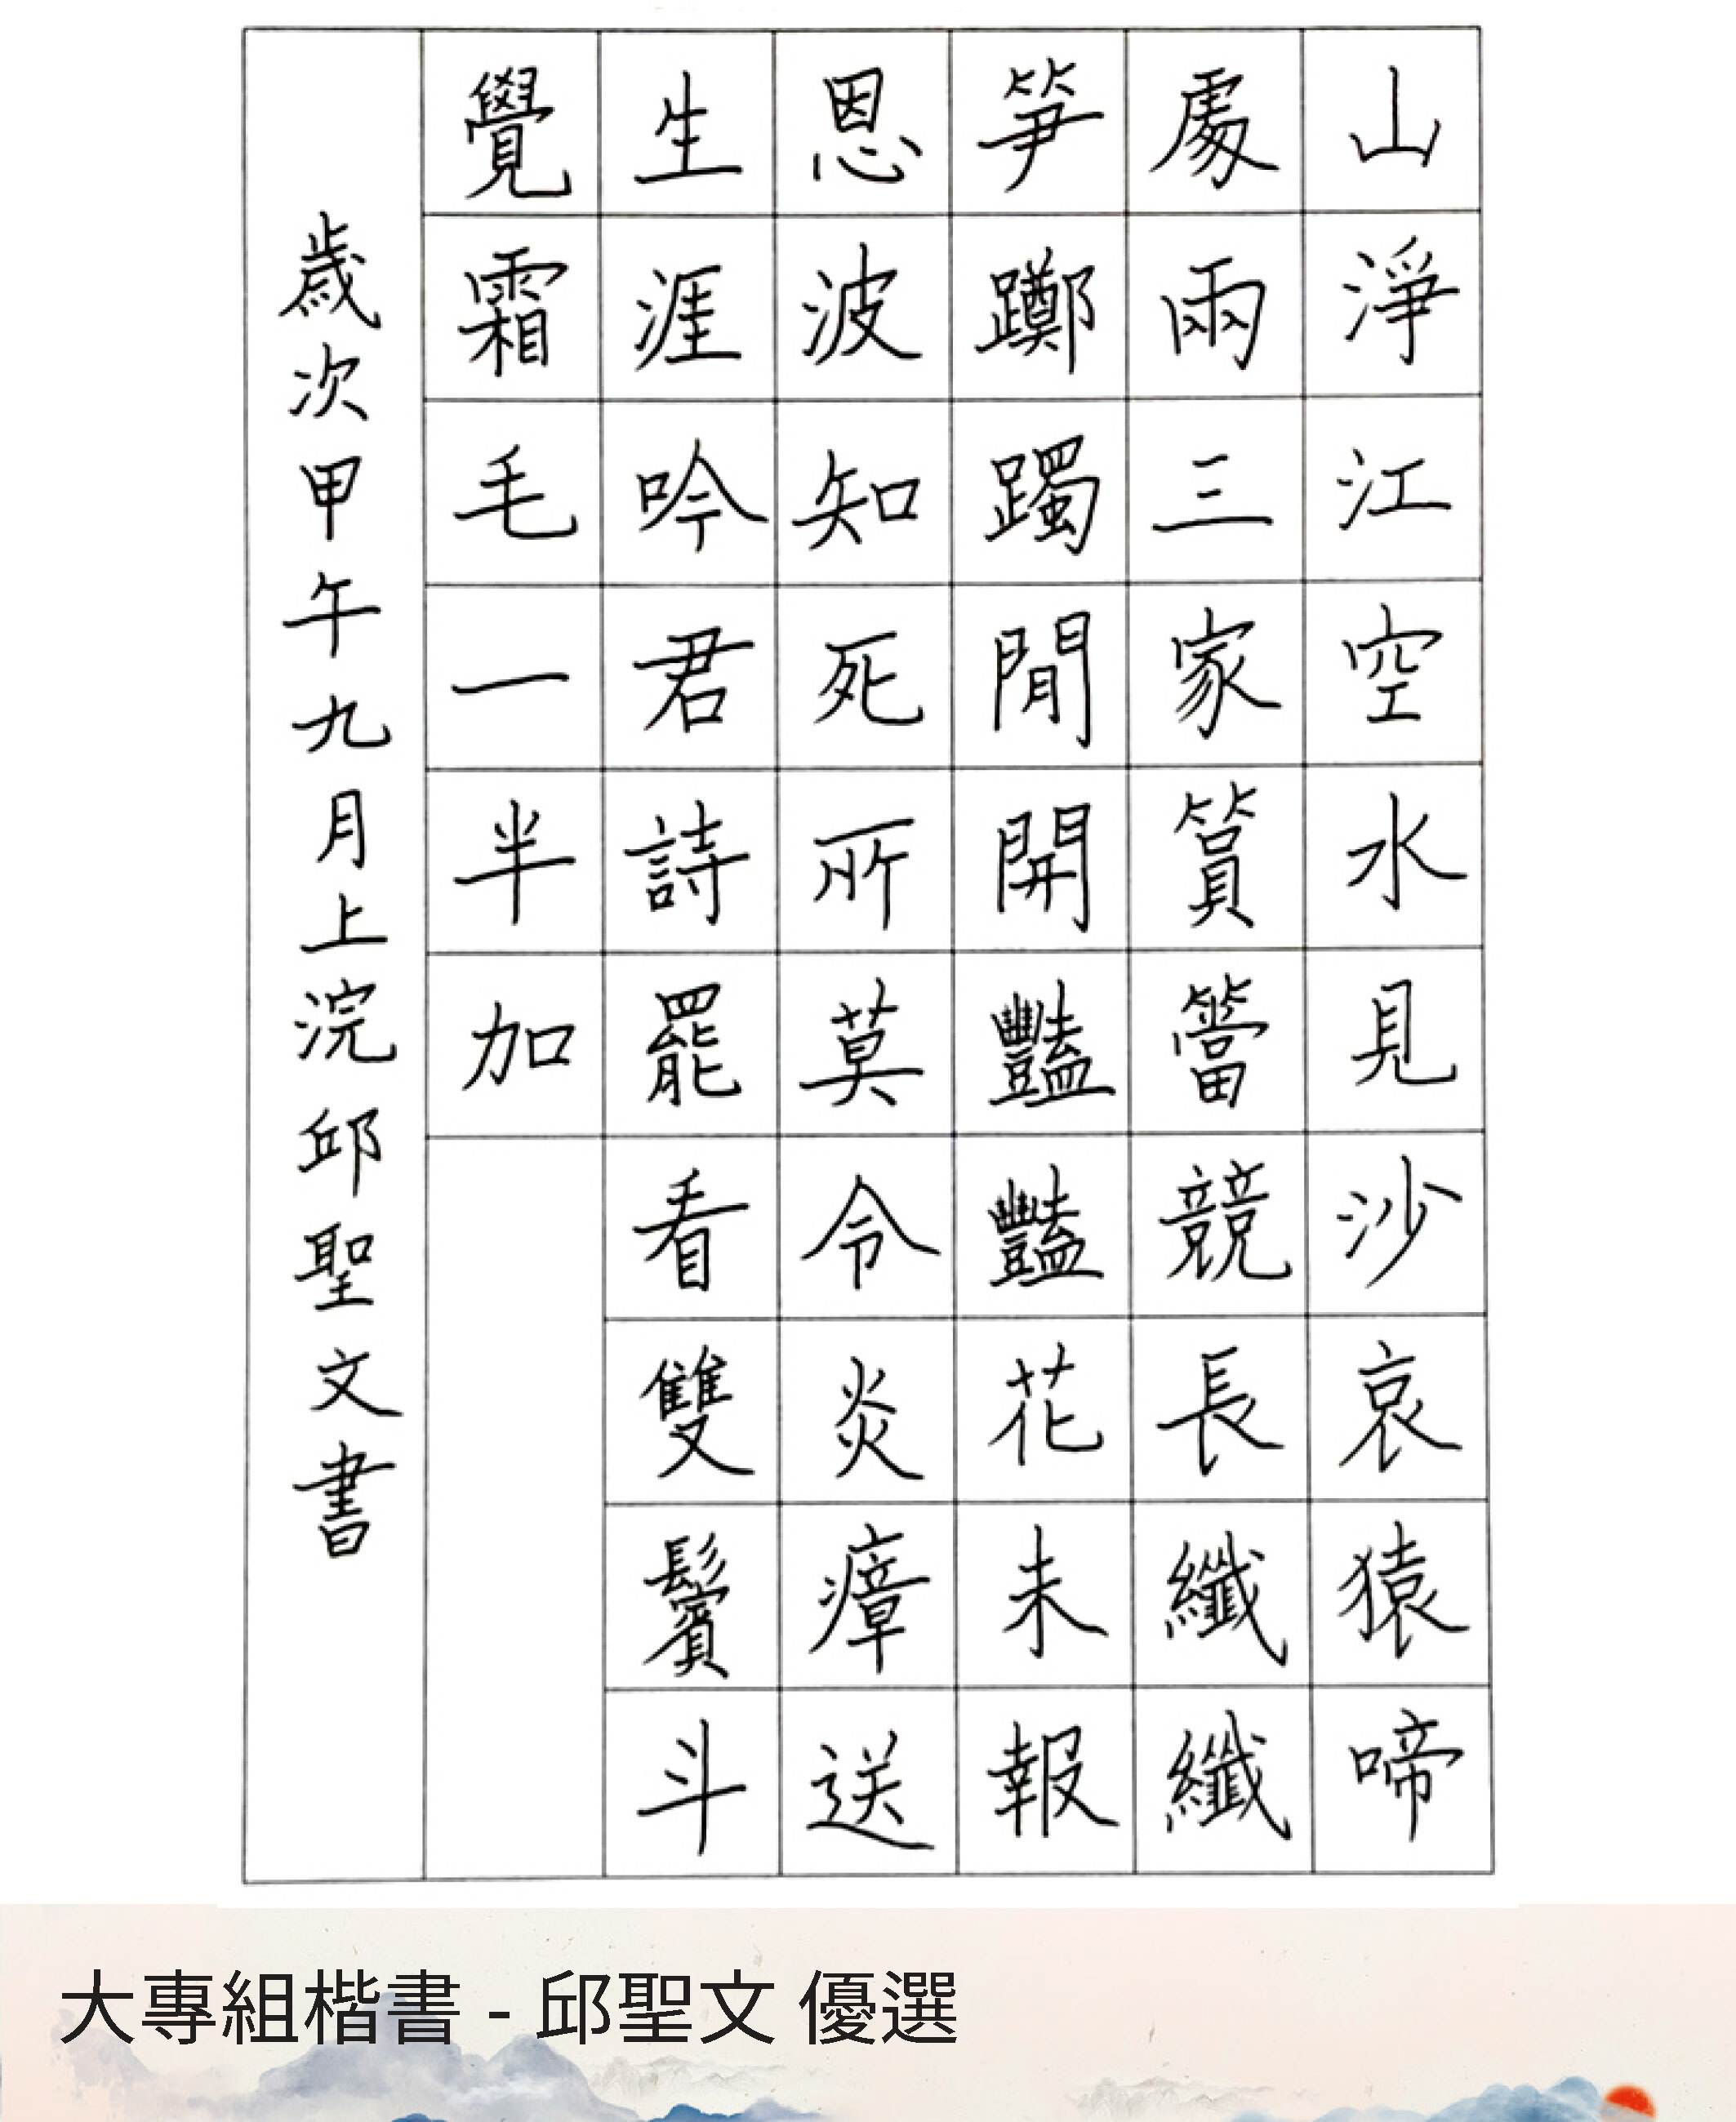 山淨江空水見沙哀猿啼
處兩三家篔簹競長纖纖
笋躑躅閒開豔豔花未報
恩波知死所莫令炎瘴送
生涯吟君詩罷看雙鬢斗
覺霜毛一半加
歲次甲午九月上浣邱聖文書
大專組楷書 - 邱聖文 優選